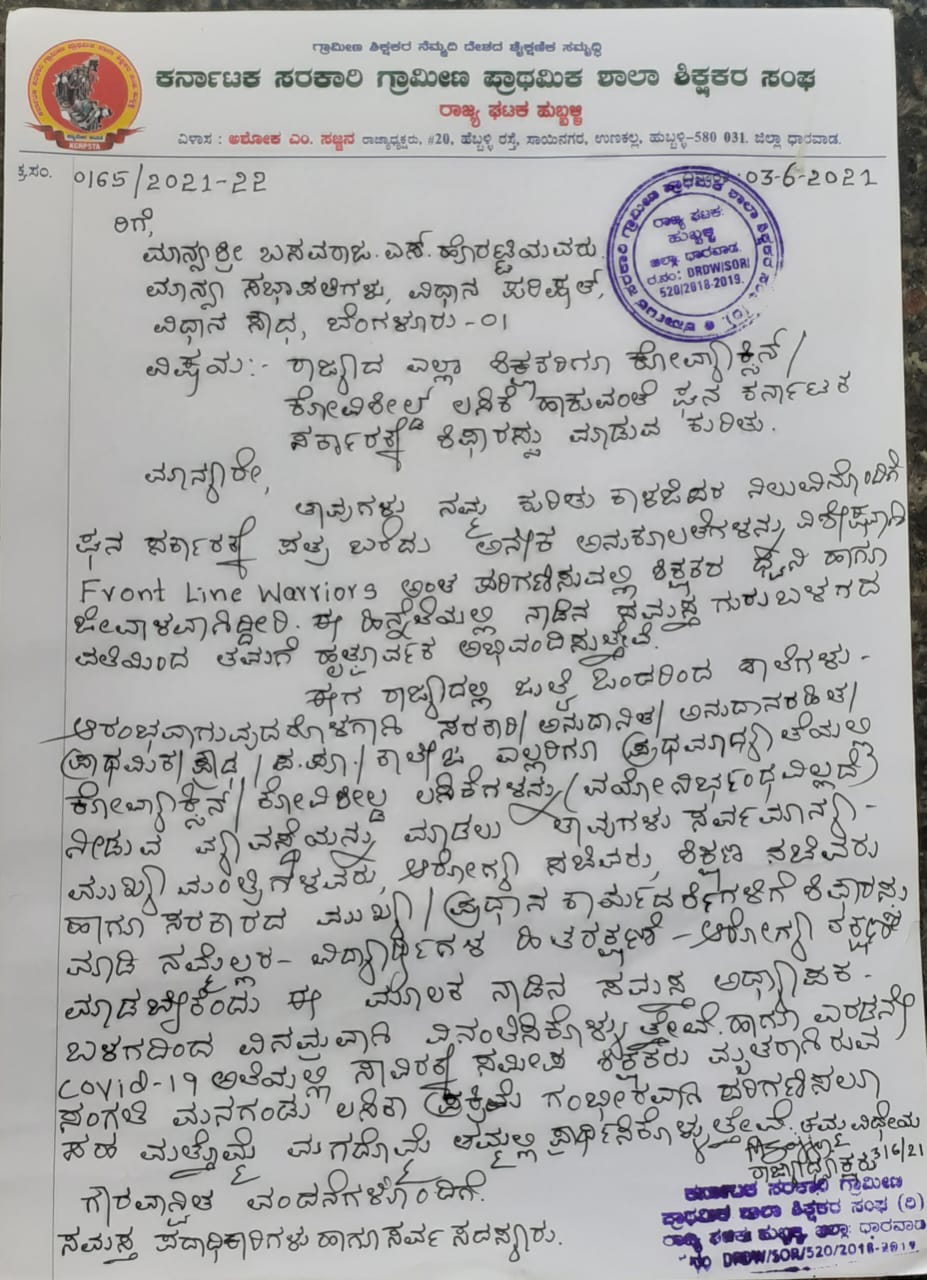 ಗ್ರಾಮೀಣ ಶಿಕ್ಷಕರ ನೆಮ್ಮದಿ ದೇಶದ ಶೈಕ್ಷಣಿಕ ಸಮೃದ್ಧಿ
ಕರ್ನಾಟಕ ಸರಕಾರಿ ಗ್ರಾಮೀಣ ಪ್ರಾಥಮಿಕ ಶಾಲಾ ಶಿಕ್ಷಕರ ಸಂಘ
ರಾಜ್ಯ ಘಟಕ ಹುಬ್ಬಳ್ಳಿ
KGRPSTA
ವಿಳಾಸ : ಅಶೋಕ ಎಂ. ಸಜ್ಜನ ರಾಜ್ಯಾಧ್ಯಕ್ಷರು, #20, ಹೆಬ್ಬಳ್ಳಿ ರಸ್ತೆ, ಸಾಯಿನಗರ, ಉಣಕಲ್ಲ, ಹುಬ್ಬಳ್ಳಿ-580 031. ಜಿಲ್ಲಾ ಧಾರವಾಡ.
ಕ್ರ.ಸಂ. 0165/2021-22
03-6-2021
ರಾಜ್ಯ ಘಟಕ:
ಹುಬ್ಬಳ್ಳಿ
ಜಿಲ್ಲಾ: ಧಾರವಾಡ.
ರ.ನಂ: DRDW/SOR/
520/2018-2019.
ರಿಗೆ,
ಮಾನ್ಯಶ್ರೀ ಬಸವರಾಜ. ಎಸ್. ಹೊರಟ್ಟಿಯವರು.
ಮಾನ್ಯ ಸಭಾಪತಿಗಳು, ವಿಧಾನ ಪರಿಷತ್,
ವಿಧಾನ ಸೌಧ, ಬೆಂಗಳೂರು -01
ವಿಷಯ:- ರಾಜ್ಯದ ಎಲ್ಲಾ ಶಿಕ್ಷಕರಿಗೂ ಕೋವ್ಯಾಕ್ಸಿನ್/
ಕೋವಿಶೀಲ್ಡ ಲಸಿಕೆ ಹಾಕುವಂತೆ ಘನ ಕರ್ನಾಟಕ
ಸರ್ಕಾರಕ್ಕೆ ಶಿಫಾರಸ್ಸು ಮಾಡುವ ಕುರಿತು.
ಮಾನ್ಯರೇ,
ತಾವುಗಳು ನಮ್ಮ ಕುರಿತು ಕಾಳಜಿಪರ ನಿಲುವಿನೊಂದಿಗೆ
ಘನ ಸರ್ಕಾರಕ್ಕೆ ಪತ್ರ ಬರೆದು ಅನೇಕ ಅನುಕೂಲತೆಗಳನ್ನು ವಿಶೇಷವಾಗಿ
Front Line Warriors ಅಂತ ಪರಿಗಣಿಸುವಲ್ಲಿ ಶಿಕ್ಷಕರ ಧ್ವನಿ ಹಾಗೂ
ಜೀವಾಳವಾಗಿದ್ದೀರಿ. ಈ ಹಿನ್ನೆಲೆಯಲ್ಲಿ ನಾಡಿನ ಸಮಸ್ತ ಗುರುಬಳಗದ
ವತಿಯಿಂದ ತಮಗೆ ಹೃತ್ಪೂರ್ವಕ ಅಭಿವಂದಿಸುತ್ತೇವೆ.
ಈಗ ರಾಜ್ಯದಲ್ಲಿ ಜುಲೈ ಒಂದರಿಂದ ಶಾಲೆಗಳು -
ಆರಂಭವಾಗುವುದರೊಳಗಾಗಿ ಸರಕಾರಿ/ ಅನುದಾನಿತ/ ಅನುದಾನರಹಿತ/
ಪ್ರಾಥಮಿಕ/ ಪ್ರೌಢ / ಪ.ಪೂ./ ಕಾಲೇಜ ಎಲ್ಲರಿಗೂ ಪ್ರಥಮಾದ್ಯತೆಯಲ್ಲಿ
ಕೋವ್ಯಾಕ್ಸಿನ್/ ಕೋವಿಶೀಲ್ಡ ಲಸಿಕೆಗಳನ್ನು (ವಯೋನಿರ್ಭಂಧವಿಲ್ಲದೆ)
ನೀಡುವ ವ್ಯವಸ್ಥೆಯನ್ನು ಮಾಡಲು ತಾವುಗಳು ಸರ್ವಮಾನ್ಯ -
ಮುಖ್ಯ ಮಂತ್ರಿಗಳವರು, ಆರೋಗ್ಯ ಸಚಿವರು, ಶಿಕ್ಷಣ ಸಚಿವರು
ಹಾಗೂ ಸರಕಾರದ ಮುಖ್ಯ / ಪ್ರಧಾನ ಕಾರ್ಯದರ್ಶಿಗಳಿಗೆ ಶಿಫಾರಸ್ಸು
ಮಾಡಿ ನಮ್ಮೆಲ್ಲರ - ವಿದ್ಯಾರ್ಥಿಗಳ ಹಿತರಕ್ಷಣೆ - ಆರೋಗ್ಯ ರಕ್ಷಣೆ
ಮಾಡಬೇಕೆಂದು ಈ ಮೂಲಕ ನಾಡಿನ ಸಮಸ್ತ ಅಧ್ಯಾಪಕ -
ಬಳಗದಿಂದ ವಿನಮ್ರವಾಗಿ ವಿನಂತಿಸಿಕೊಳ್ಳುತ್ತೇವೆ. ಹಾಗೂ ಎರಡನೇ
Covid-19 ಅಲೆಯಲ್ಲಿ ಸಾವಿರಕ್ಕೆ ಸಮೀಪ ಶಿಕ್ಷಕರು ಮೃತರಾಗಿರುವ
ಸಂಗತಿ ಮನಗಂಡು ಲಸಿಕಾ ಪ್ರಕ್ರಿಯೆ ಗಂಭೀರವಾಗಿ ಪರಿಗಣಿಸಲೂ
ಸಹ ಮತ್ತೊಮ್ಮೆ ಮಗದೊಮ್ಮೆ ತಮ್ಮಲ್ಲಿ ಪ್ರಾರ್ಥಿಸಿಕೊಳ್ಳುತ್ತೇವೆ. ತಮ್ಮ ವಿಧೇಯ
3/6/21
ರಾಜ್ಯಾಧ್ಯಕ್ಷರು
ಗೌರವಾನ್ವಿತ ವಂದನೆಗಳೊಂದಿಗೆ.
ಸಮಸ್ತ ಪದಾಧಿಕಾರಿಗಳು ಹಾಗೂ ಸರ್ವ ಸದಸ್ಯರು.
ಕರ್ನಾಟಕ ಸರಕಾರಿ ಗ್ರಾಮೀಣ
ಪ್ರಾಥಮಿಕ ಶಾಲಾ ಶಿಕ್ಷಕರ ಸಂಘ (ರಿ)
ರಾಜ್ಯ ಘಟಕ ಹುಬ್ಬಳ್ಳಿ ಜಿಲ್ಲಾ: ಧಾರವಾಡ
ನಂ DRDW/SOR/520/2018-2019.